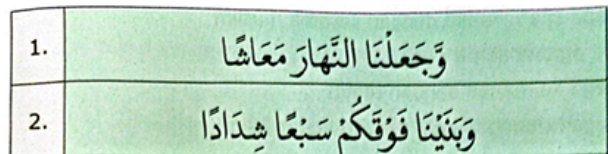 1. وَّجَعَلْنَا النَّهَارَ مَعَاشًا
2. وَبَنَيْنَا فَوْقَكُمْ سَبْعًا شِدَادًا